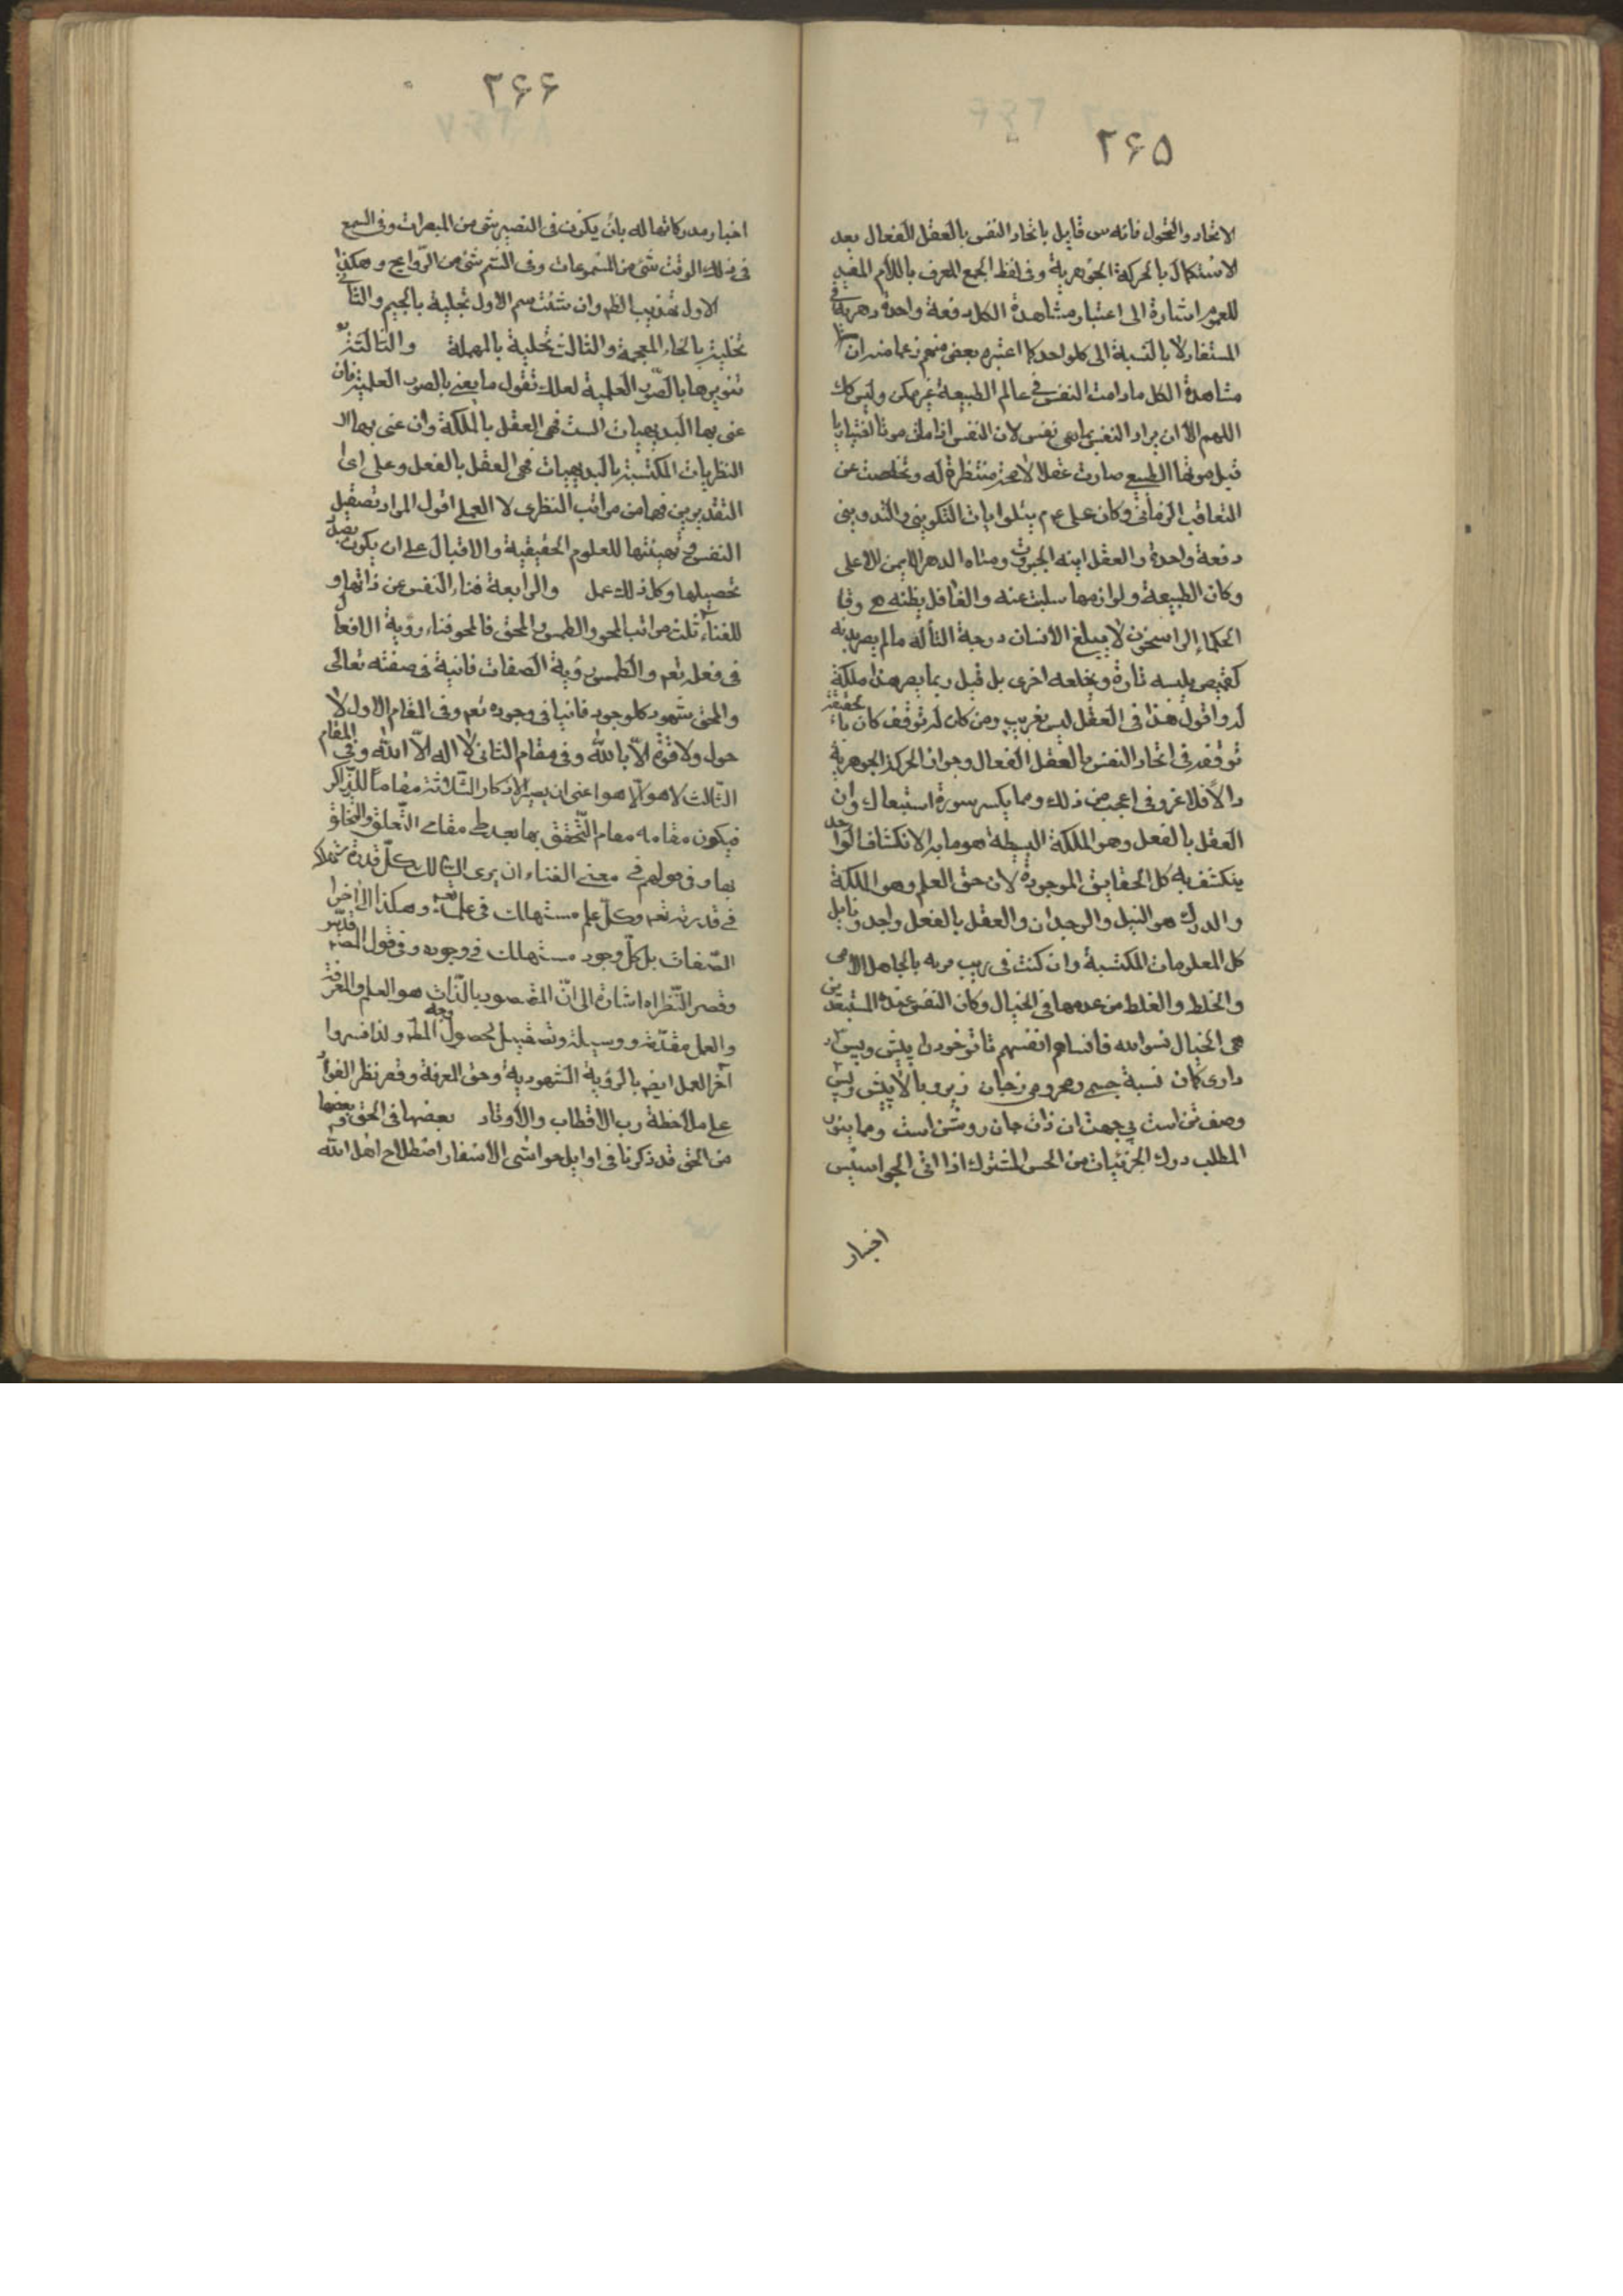 ٢۶۵
الاتحاد والتحول فانه س قايل باتحاد النفس بالعقل الفعال بعد
الاستكمال بالحركة الجوهرية وفى لفظ الجمع المعرف باللام المفيد
للعموم اشارة الى اعتبار مشاهدة الكل دفعة واحدة دهرية
المستفاد لا بالنسبة الى كل واحد كما اعتبره بعض منهم زعما منه ان
مشاهدة الكل ما دامت النفس فى عالم الطبيعة غير ممكن وليس كك
اللهم الا ان يراد النفس بما هى نفس لان النفس اذا ماتت موتا اختياريا
قبل موتها الطبيع صارت عقلا لا منتظرة له وتخلصت عن
التعاقب الزمانى وكان على يتلوا ايات التكوينى والتدوينى
دفعة واحدة والعقل اينه الجبروت ومتاه الدهر الايمن الاعلى
وكان الطبيعة ولوازمها سلبت عنه والغافل يظنه وقا
الحكماء الراسخون لا يبلغ الانسان درجة التأله ما لم يصر بدنه
كقميص يلبسه تارة ويخلعه اخرى بل قيل ربما يصر هذا ملكة
له واقول هذا فى العقل ليس بغريب ومن كان له توقف كان
توقفه فى اتحاد النفس بالعقل الفعال وجواز الحركة الجوهرية
والا فلا غرو فى اعجب من ذلك ومما يكسر سورة استبعادك وان
العقل بالفعل وهو الملكة البسيطة هو ما به الانكشاف الواحد
ينكشف به كل الحقايق الموجودة لان حق العلم وهو الملكة
والدرك هو النيل والوجدان والعقل بالفعل واجد ونايل
كل المعلومات المكتسبة وان كنت فى ريب مر به بالجاهل الامى
والخلط والغلط من عدمها فى الخيال وكان النفس عند المستبعدين
هى الخيال نسوا الله فانساهم انفسهم تا تو خود را پيش وپس
دارى گمان نسبة جسمى ومحرومى زجان زير وبالا پيش وپس
وصف تن است بى جهت ان ذات جان روشن است ومما ينور
المطلب درك الجزئيات من الحس المشترك اذا اتى الجواسيس
اخبار
٢۶۶
اخبار مدركاتها له بان يكون فى البصر شئ من المبصرات وفى السمع
فى ذلك الوقت شئ من المسموعات وفى الشم شئ من الروايح وهكذا
الاول تهذيب الظ وان شئت سم الاول تجلية بالجيم والثانى
تخلية بالخاء المعجمة والثالث تحلية بالمهملة والثالثة
تنويرها بالصور العلمية لعلك تقول ما يعنى بالصور العلمية فان
عنى بها البديهيات الست فهى العقل بالملكة وان عنى بها
النظريات المكتسبة بالبديهيات فهى العقل بالفعل وعلى اى
التقديرين فهما من مراتب النظرى لا العملى اقول المراد تصقيل
النفس وتهيئتها للعلوم الحقيقية والاقبال على ان يكون بصدد
تحصيلها وكل ذلك عمل والرابعة فناء النفس عن ذاتها و
للفناء ثلث مراتب المحو والطمس والمحق فالمحو فناء رؤية الافعال
فى فعله تعم والطمس رؤية الصفات فانية فى صفته تعالى
والمحق شهود كل وجود فانيا فى وجوده تعم وفى المقام الاول لا
حول ولا قوة الا بالله وفى مقام الثانى لا اله الا الله وفى المقام
الثالث لا هو الا هو اعنى ان يصير الاذكار الثلاثة مقاما للذاكر
فيكون مقامه مقام التحقق بها بعد طى مقامى التعلق والتخلق
بها وفى قولهم فى معنى الفناء ان يرى السالك كل قدرة مستهلكة
فى قدرته تعم وكل علم مستهلك فى علمه تعم وهكذا الى اخر
الصفات بل كل وجود مستهلك فى وجوده وفى قول
وقصر النظر اه اشارة الى ان المقصود بالذات هو العلم والمعرفة
والعمل مقدمة ووسيلة وتصقيل لحصول وجه المط ولذا فسروا
آخر العمل ايض بالرؤية الشهودية وحق المعرفة وقصر نظر الفؤاد
على ملاحظة رب الاقطاب والاوتاد بعضها فى الحق وبعضها
من الحق قد ذكرنا فى اوايل حواشى الاسفار اصطلاح اهل الله